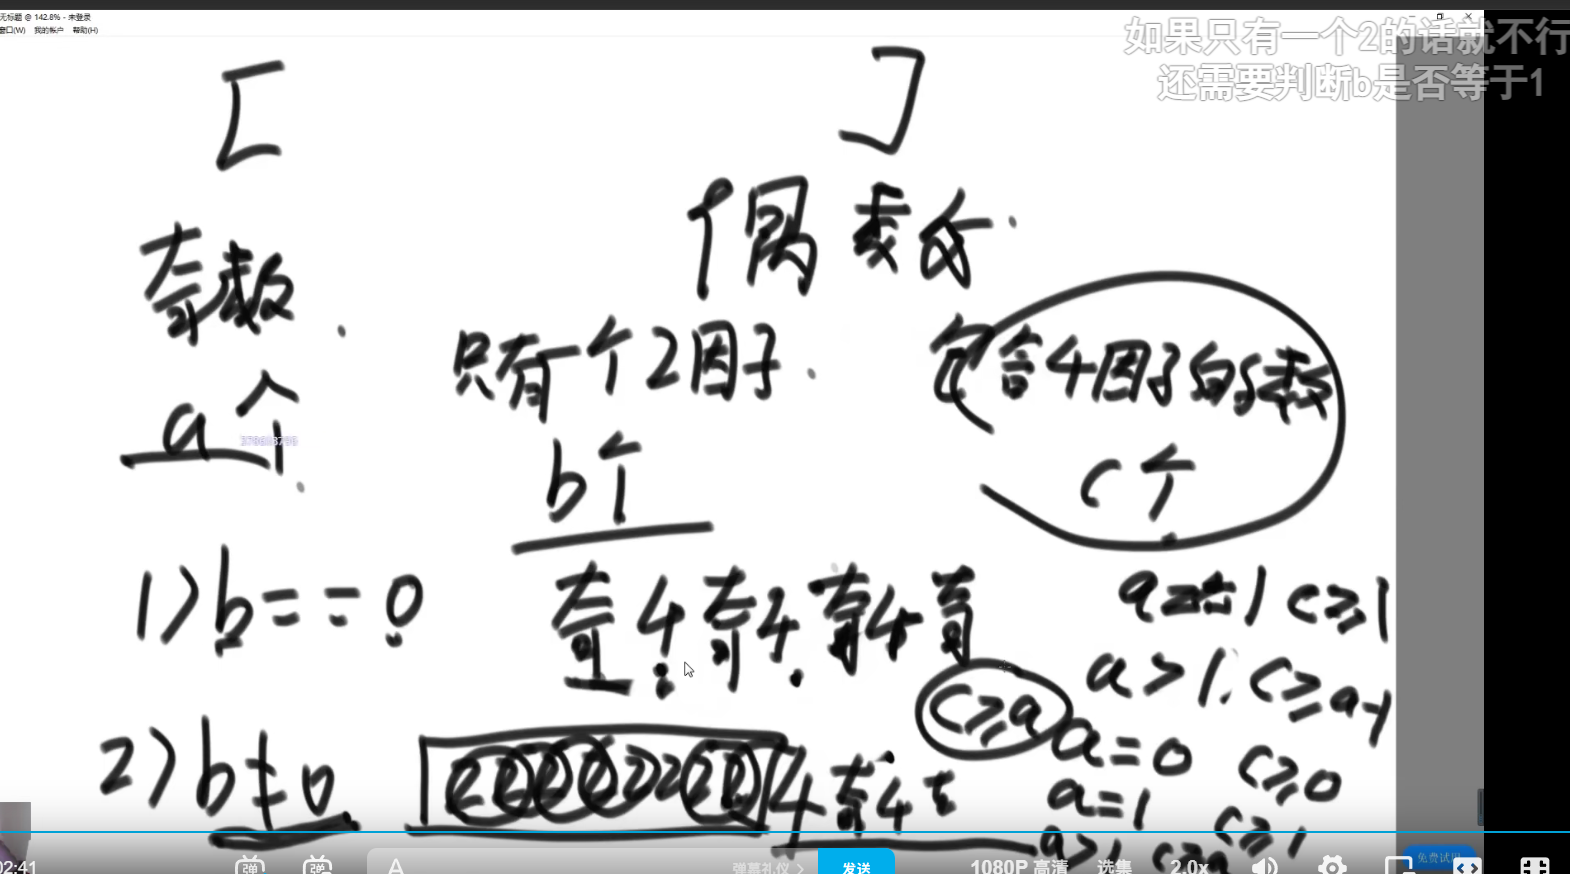 无标题 @ 142.8% - 未登录
窗口(W) 我的帐户 帮助(H)
如果只有一个2的话就不行
还需要判断b是否等于1
[ ]
奇数.
偶数.
只有一个2因子.
包含4因子的数
a个.
b个
c个
1) b==0
奇4奇4奇4奇
a==1 c≥1
a>1. c≥a-1
c≥a
a=0 c≥0
2) b≠0
22222222 4奇4奇
a=1 c≥1
a>1 c≥a
02:41
弹
弹
A
弹幕礼仪 >
发送
1080P 高清
选集
2.0x
免费试用